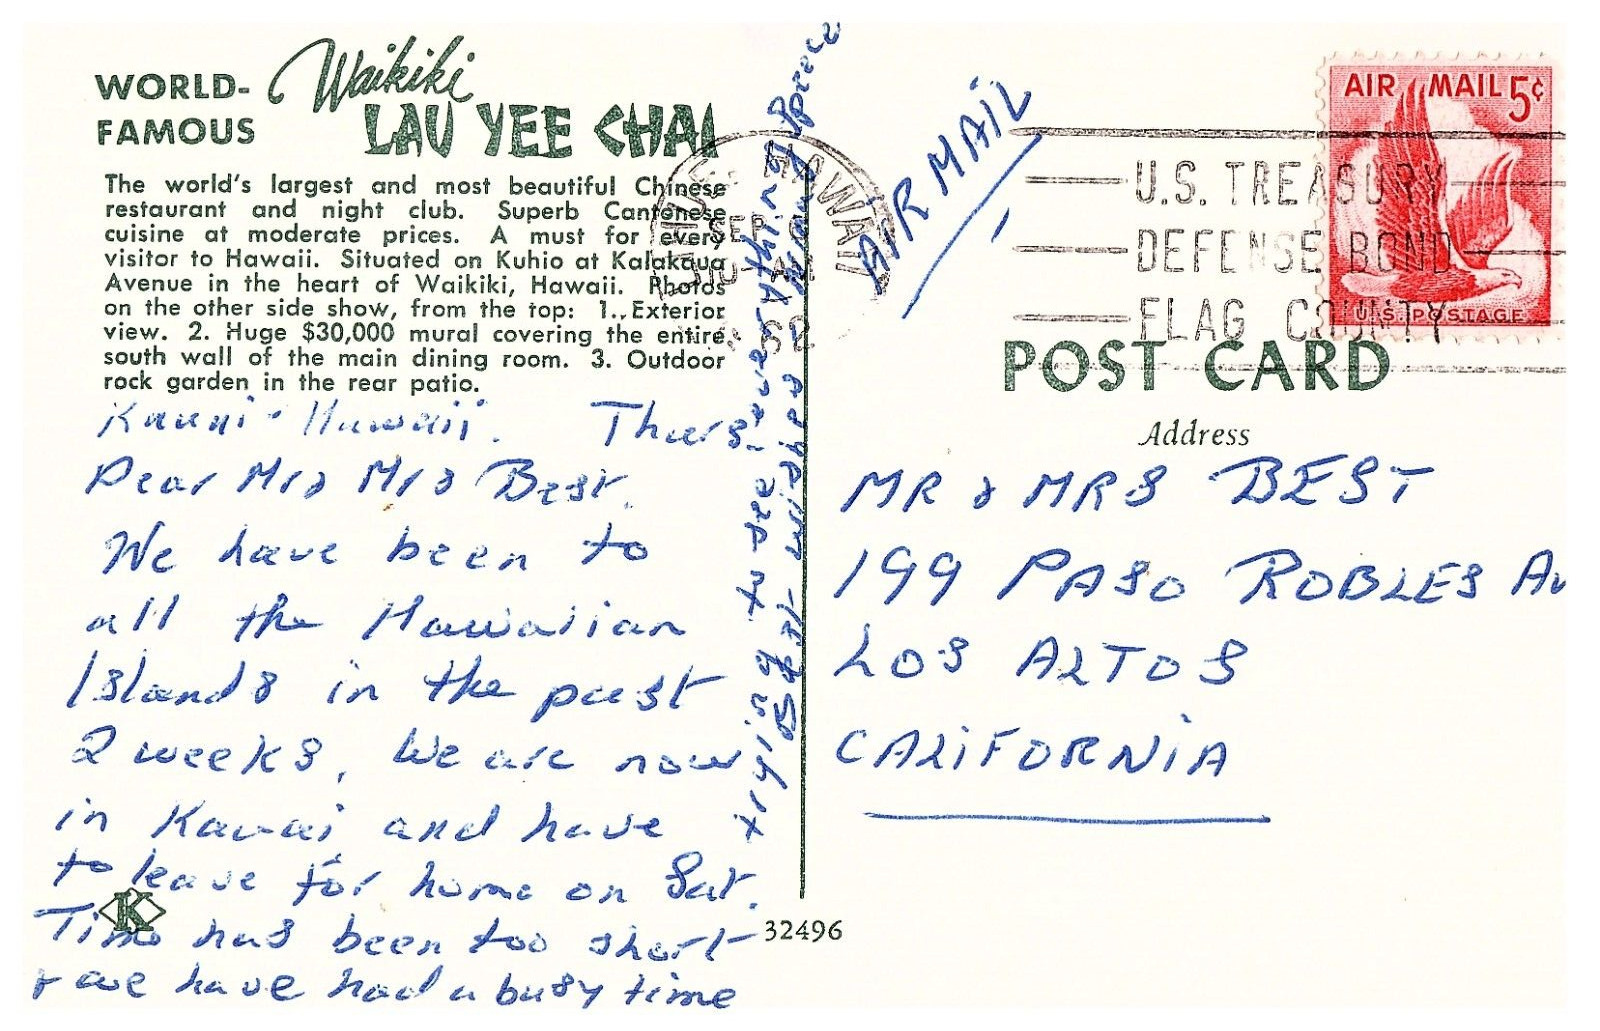 WORLD-
FAMOUS
Waikiki
LAU YEE CHAI
The world's largest and most beautiful Chinese
restaurant and night club. Superb Cantonese
cuisine at moderate prices. A must for every
visitor to Hawaii. Situated on Kuhio at Kalakaua
Avenue in the heart of Waikiki, Hawaii. Photos
on the other side show, from the top: 1. Exterior
view. 2. Huge $30,000 mural covering the entire
south wall of the main dining room. 3. Outdoor
rock garden in the rear patio.
Kauai - Hawaii. Thurs
Dear Mr & Mrs Best.
We have been to
all the Hawaiian
Islands in the past
2 weeks. We are now
in Kauai and have
to leave for home on Sat.
Time has been too short
& we have had a busy time
trying to see everything
Best wishes
K
32496
HAWAII
SEP
10 AM
62
AIR MAIL
U.S. TREASURY
DEFENSE BOND
FLAG COUNTY
AIR MAIL 5¢
U.S. POSTAGE
POST CARD
Address
MR & MRS BEST
199 PASO ROBLES Av
LOS ALTOS
CALIFORNIA